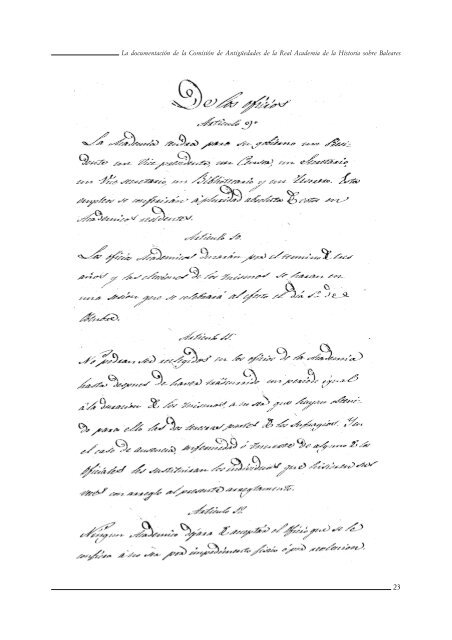 La documentación de la Comisión de Antigüedades de la Real Academia de la Historia sobre Baleares
De los oficios
Artículo 9º
La Academia tendra para su gobierno un Presi-
dente un Vice presidente, un Censor, un Secretario,
un Vice secretario, un Bibliotecario y un Tesorero. Estos
empleos se conferirán á pluralidad absoluta de votos en
Academicos residentes.
Artículo 10.
Los oficios Academicos durarán por el termino de tres
años y las elecciones de los mismos se haran en
una sesion que se celebrará al efecto el dia 1º de
Octubre.
Artículo 11.
No podran ser reelegidos en los oficios de la Academia
hasta despues de haver trascurrido un periodo igual
á la duracion de los mismos a no ser que hayan obteni-
do para ello las dos terceras partes de los sufragios. Y en
el caso de ausencia, enfermedad ó muerte de alguno de los
oficiales los sustituiran los individuos que hicieren sus
veces con arreglo al presente reglamento.
Artículo 12.
Ningun Academico dejara de aceptar el oficio que se le
confiera á no ser por impedimento fisico ó por reeleccion.
23